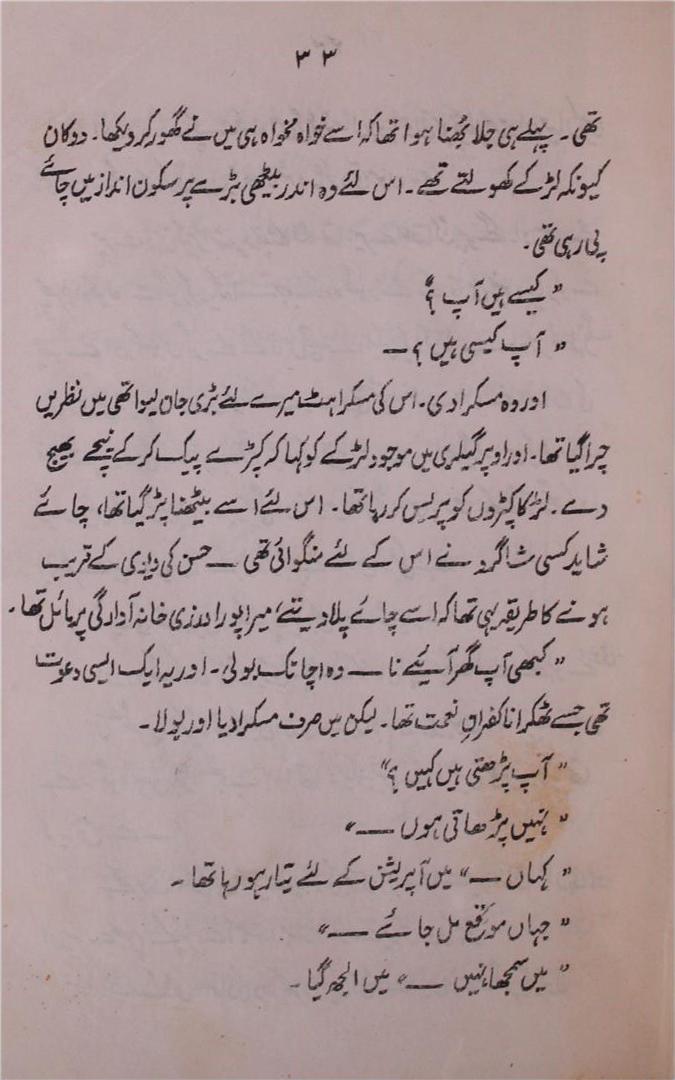 ۳۳
تھی۔ پہلے ہی جلا بھنا ہوا تھا کہ اسے خواہ مخواہ ہی میں نے گھور کر دیکھا۔ دوکان
کیونکہ لڑکے کھولتے تھے۔ اس لئے وہ اندر بیٹھی بڑے پرسکون انداز میں چائے
پی رہی تھی۔
" کیسے ہیں آپ ؟"
" آپ کیسی ہیں ؟ —
اور وہ مسکرا دی۔ اس کی مسکراہٹ میرے لئے بڑی جان لیوا تھی میں نظریں
چرا گیا تھا۔ اور اوپر گیلری میں موجود لڑکے کو کہا کہ کپڑے پیک کر کے نیچے بھیج
دے۔ لڑکا کپڑوں کو پریس کر رہا تھا۔ اس لئے اسے بیٹھنا پڑ گیا تھا، چائے
شاید کسی شاگرد نے اس کے لئے منگوائی تھی — حسن کی دیوی کے قریب
ہونے کا طریقہ یہی تھا کہ اسے چائے پلا دیتے، میرا پورا درزی خانہ آوارگی پر مائل تھا۔
" کبھی آپ گھر آیئے نا — وہ اچانک بولی۔ اور یہ ایک ایسی دعوت
تھی جسے ٹھکرانا کفرانِ نعمت تھا۔ لیکن میں صرف مسکرا دیا اور بولا۔
" آپ پڑھتی ہیں کہیں ؟"
" نہیں پڑھاتی ہوں —"
" کہاں —" میں آپریشن کے لئے تیار ہو رہا تھا۔
" جہاں موقع مل جائے —"
" میں سمجھا نہیں —" میں الجھ گیا۔